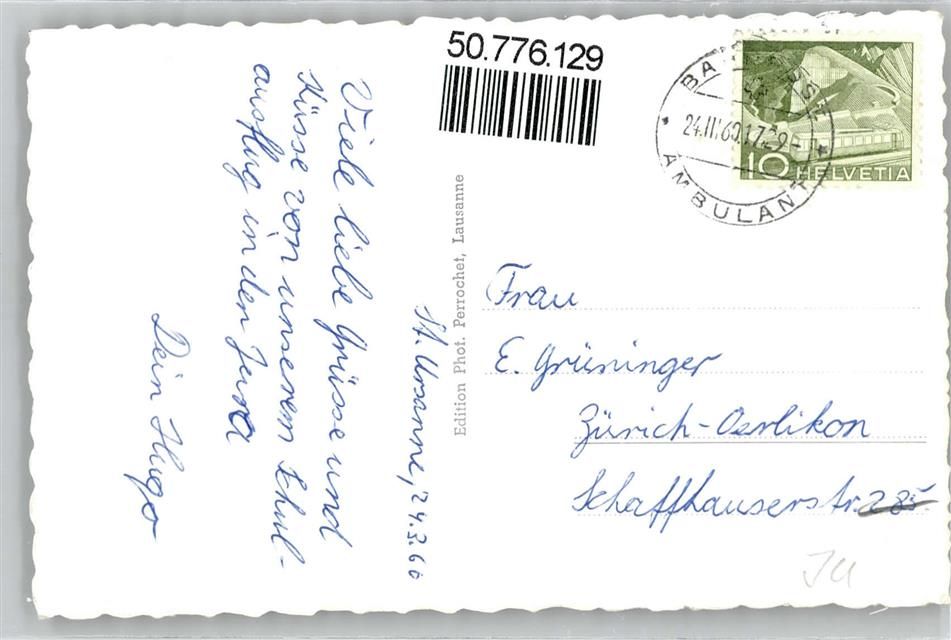 50.776.129
St. Ursanne, 24.3.60
Viele liebe Grüsse und
Küsse von unserem Schul-
ausflug in den Jura
Dein Hugo
Edition Phot. Perrochet, Lausanne
24.III.60.17
AMBULANT
10 HELVETIA
Frau
E. Grüninger
Zürich-Oerlikon
Schaffhauserstr. 285
JU